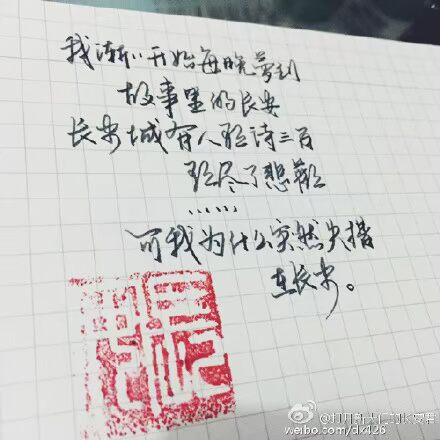 我渐渐开始每晚梦到
故事里的长安
长安城有人歌诗三百
歌尽了悲歡
……
可我为什么突然失措
在长安。
weibo.com/dx426